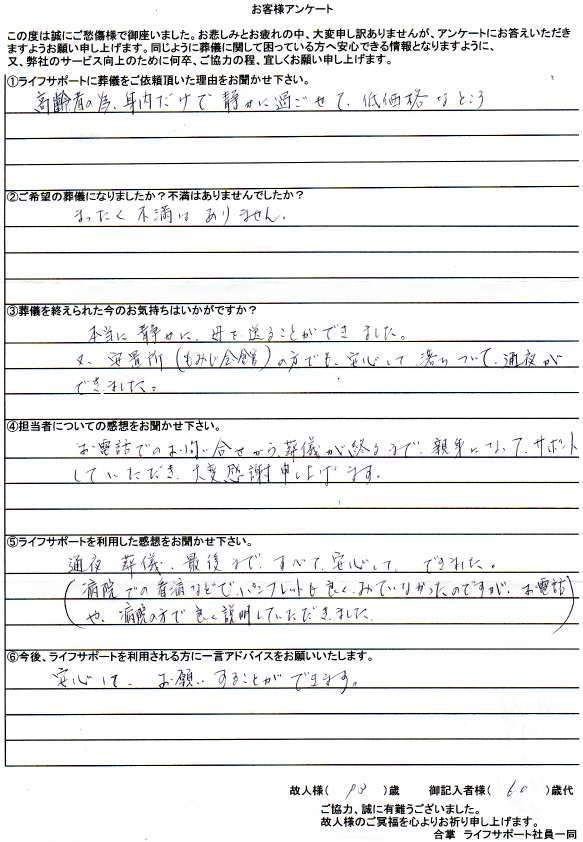 お客様アンケート
この度は誠にご愁傷様で御座いました。お悲しみとお疲れの中、大変申し訳ありませんが、アンケートにお答えいただき
ますようお願い申し上げます。同じように葬儀に関して困っている方へ安心できる情報となりますように、
又、弊社のサービス向上のために何卒、ご協力の程、宜しくお願い申し上げます。
①ライフサポートに葬儀をご依頼頂いた理由をお聞かせ下さい。
高齢者の為、身内だけで静かに過ごせて、低価格なところ
②ご希望の葬儀になりましたか？不満はありませんでしたか？
まったく不満はありません。
③葬儀を終えられた今のお気持ちはいかがですか？
本当に静かに、母を送ることができました。
又、安置所(もみじ会館)の方でも、安心して落ちついて、通夜が
できました。
④担当者についての感想をお聞かせ下さい。
お電話でのお問い合せから、葬儀が終るまで、親身になって、サポート
していただき、大変感謝申し上げます。
⑤ライフサポートを利用した感想をお聞かせ下さい。
通夜、葬儀、最後まで、すべて、安心して、できました。
(病院での看病などで、パンフレットも良く、みていなかったのですが、お電話
や、病院の方で良く説明していただきました。)
⑥今後、ライフサポートを利用される方に一言アドバイスをお願いいたします。
安心して、お願いすることができます。
故人様( 90 )歳 御記入者様( 60 )歳代
ご協力、誠に有難うございました。
故人様のご冥福を心よりお祈り申し上げます。
合掌 ライフサポート社員一同